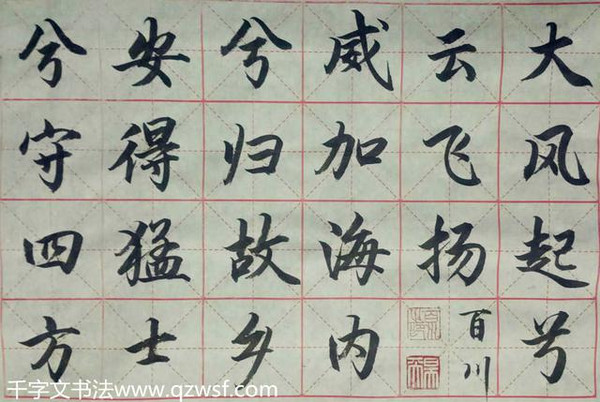 大风起兮
云飞扬
百川
威加海内
兮归故乡
安得猛士
兮守四方
千字文书法www.qzwsf.com